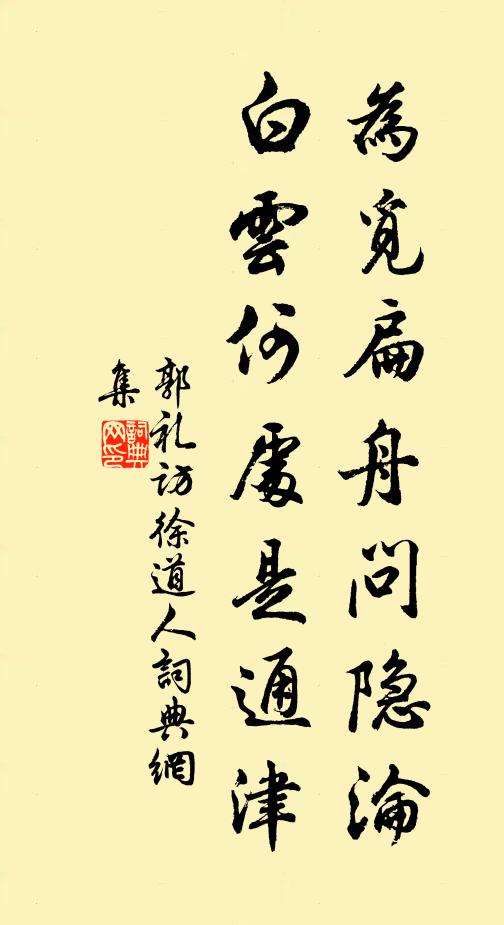 為覓扁舟問隐淪
白雲何處是通津
郭礼访徐道人詞典網
集
詞典
网印